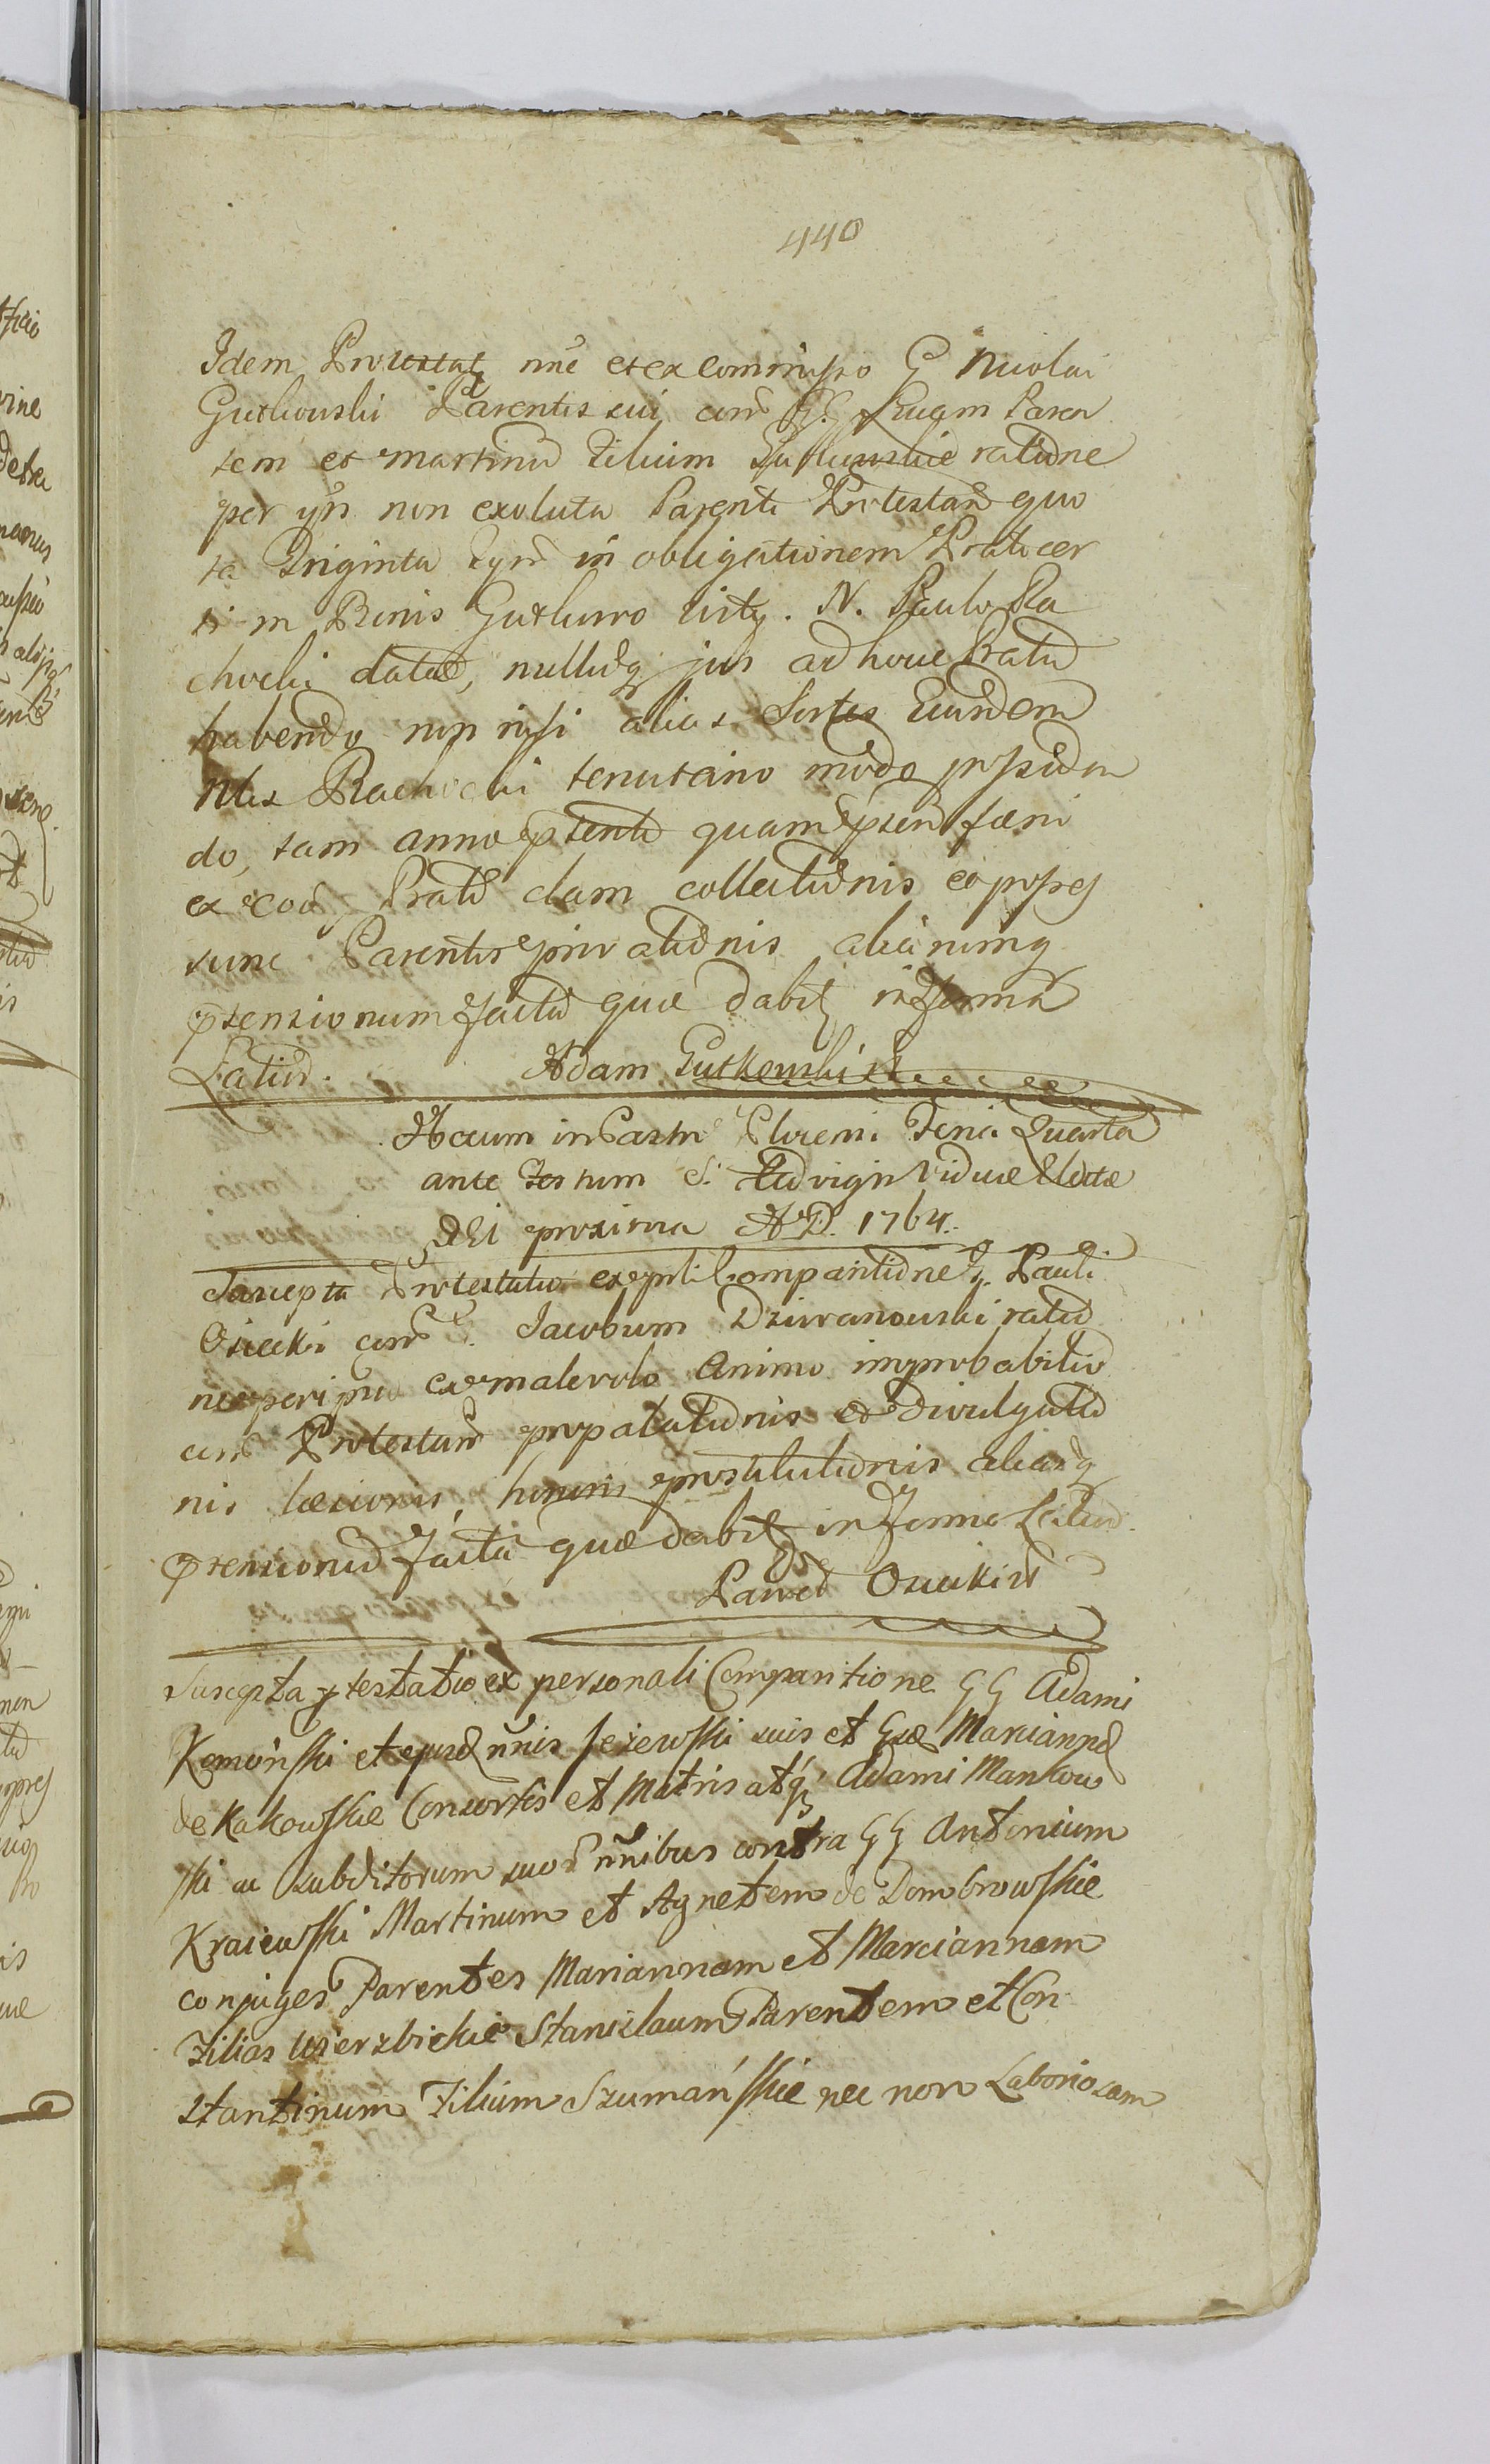 440
Idem Protestatq nne et ex commisso G Nicolai
Gutkowski Parentis sui con GG Lucam Paren
tem et Martinu Filium Gutkowskie ratione
per ips non exoluta Parenti Protestan quo
ta Triginta Tynf in obligationem Prati cer
ti in Bonis Gutkowo sitq. N. Paulo Ra
chocki datae, nullumq jus ad hoce Pratu
habendo non nisi alias Sortes Eiusdem
Nlis Rachocki tenutario modo possiden
do, tam anno ptento quam pnti faeni
ex eod Prato clam collectionis et posses
sione Parentis privationis aliarumq
ptensionum facta quae dabitq in Forma
Latiori. Adam Gutkowski
Actum in Castro Plocen Feria Quarta
ante Festum S. Hedvigis Viduae Electae
DEI proxima A.D. 1764.
Suscepta Protestatio ex prli Comparitione G. Pauli
Osiecki con G. Jacobum Dziwanowski ratio
ne per ipsu ex malevolo Animo improbabiliu
con Protestan propalationis et divulgatio
nis laesionis, honoris prostitutionis aliarq
ptensionu facta quae dabitq in Forma Latior.
Paweł Osiecki
Suscepta ptestatio ex personali Comparitione GG Adami
Komoński et ejusd nnis Jeżewski suis et Gsae Mariannae
de Kakowskie Consortis et Matris atq Adami Mankow
ski ac subditorum suor nnibus contra GG Antonium
Kraiewski Martinum et Agnetem de Dombrowskie
conjuges Parentes Mariannam et Marciannam
Filias Wierzbickie Stanislaum Parentem et Con
stantinum Filium Szumańskie nec non Laboriosam